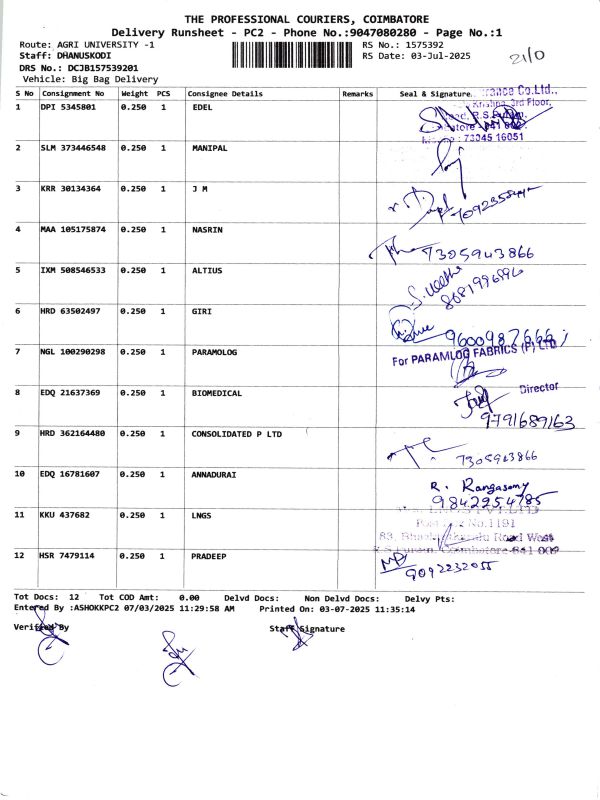 THE PROFESSIONAL COURIERS, COIMBATORE
Delivery Runsheet - PC2 - Phone No.:9047080280 - Page No.:1
Route: AGRI UNIVERSITY -1 RS No.: 1575392
Staff: DHANUSKODI RS Date: 03-Jul-2025 21/0
DRS No.: DCJB157539201
Vehicle: Big Bag Delivery
S No Consignment No Weight PCS Consignee Details Remarks Seal & Signature
1 DPI 5345801 0.250 1 EDEL
Co.Ltd.,
Krishna, 3rd Floor,
R.S.Puram,
73045 16051
2 SLM 373446548 0.250 1 MANIPAL
3 KRR 30134364 0.250 1 J M
4 MAA 105175874 0.250 1 NASRIN 7305943866
5 IXM 508546533 0.250 1 ALTIUS
8081996896
6 HRD 63502497 0.250 1 GIRI
7 NGL 100290298 0.250 1 PARAMOLOG
For PARAMLOG FABRICS (P) LTD
Director
8 EDQ 21637369 0.250 1 BIOMEDICAL
9791689163
9 HRD 362164480 0.250 1 CONSOLIDATED P LTD 7305943866
10 EDQ 16781607 0.250 1 ANNADURAI R. Rangasamy
9842954785
11 KKU 437682 0.250 1 LNGS
No.1191
Road West
R.S.Puram, Coimbatore-641 002
12 HSR 7479114 0.250 1 PRADEEP 9092232055
Tot Docs: 12 Tot COD Amt: 0.00 Delvd Docs: Non Delvd Docs: Delvy Pts:
Entered By :ASHOKKPC2 07/03/2025 11:29:58 AM Printed On: 03-07-2025 11:35:14
Verified By Staff Signature